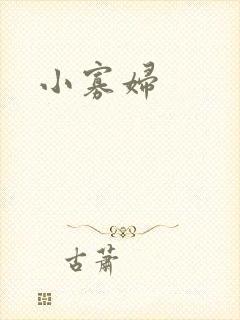 小寡婦
古蕭